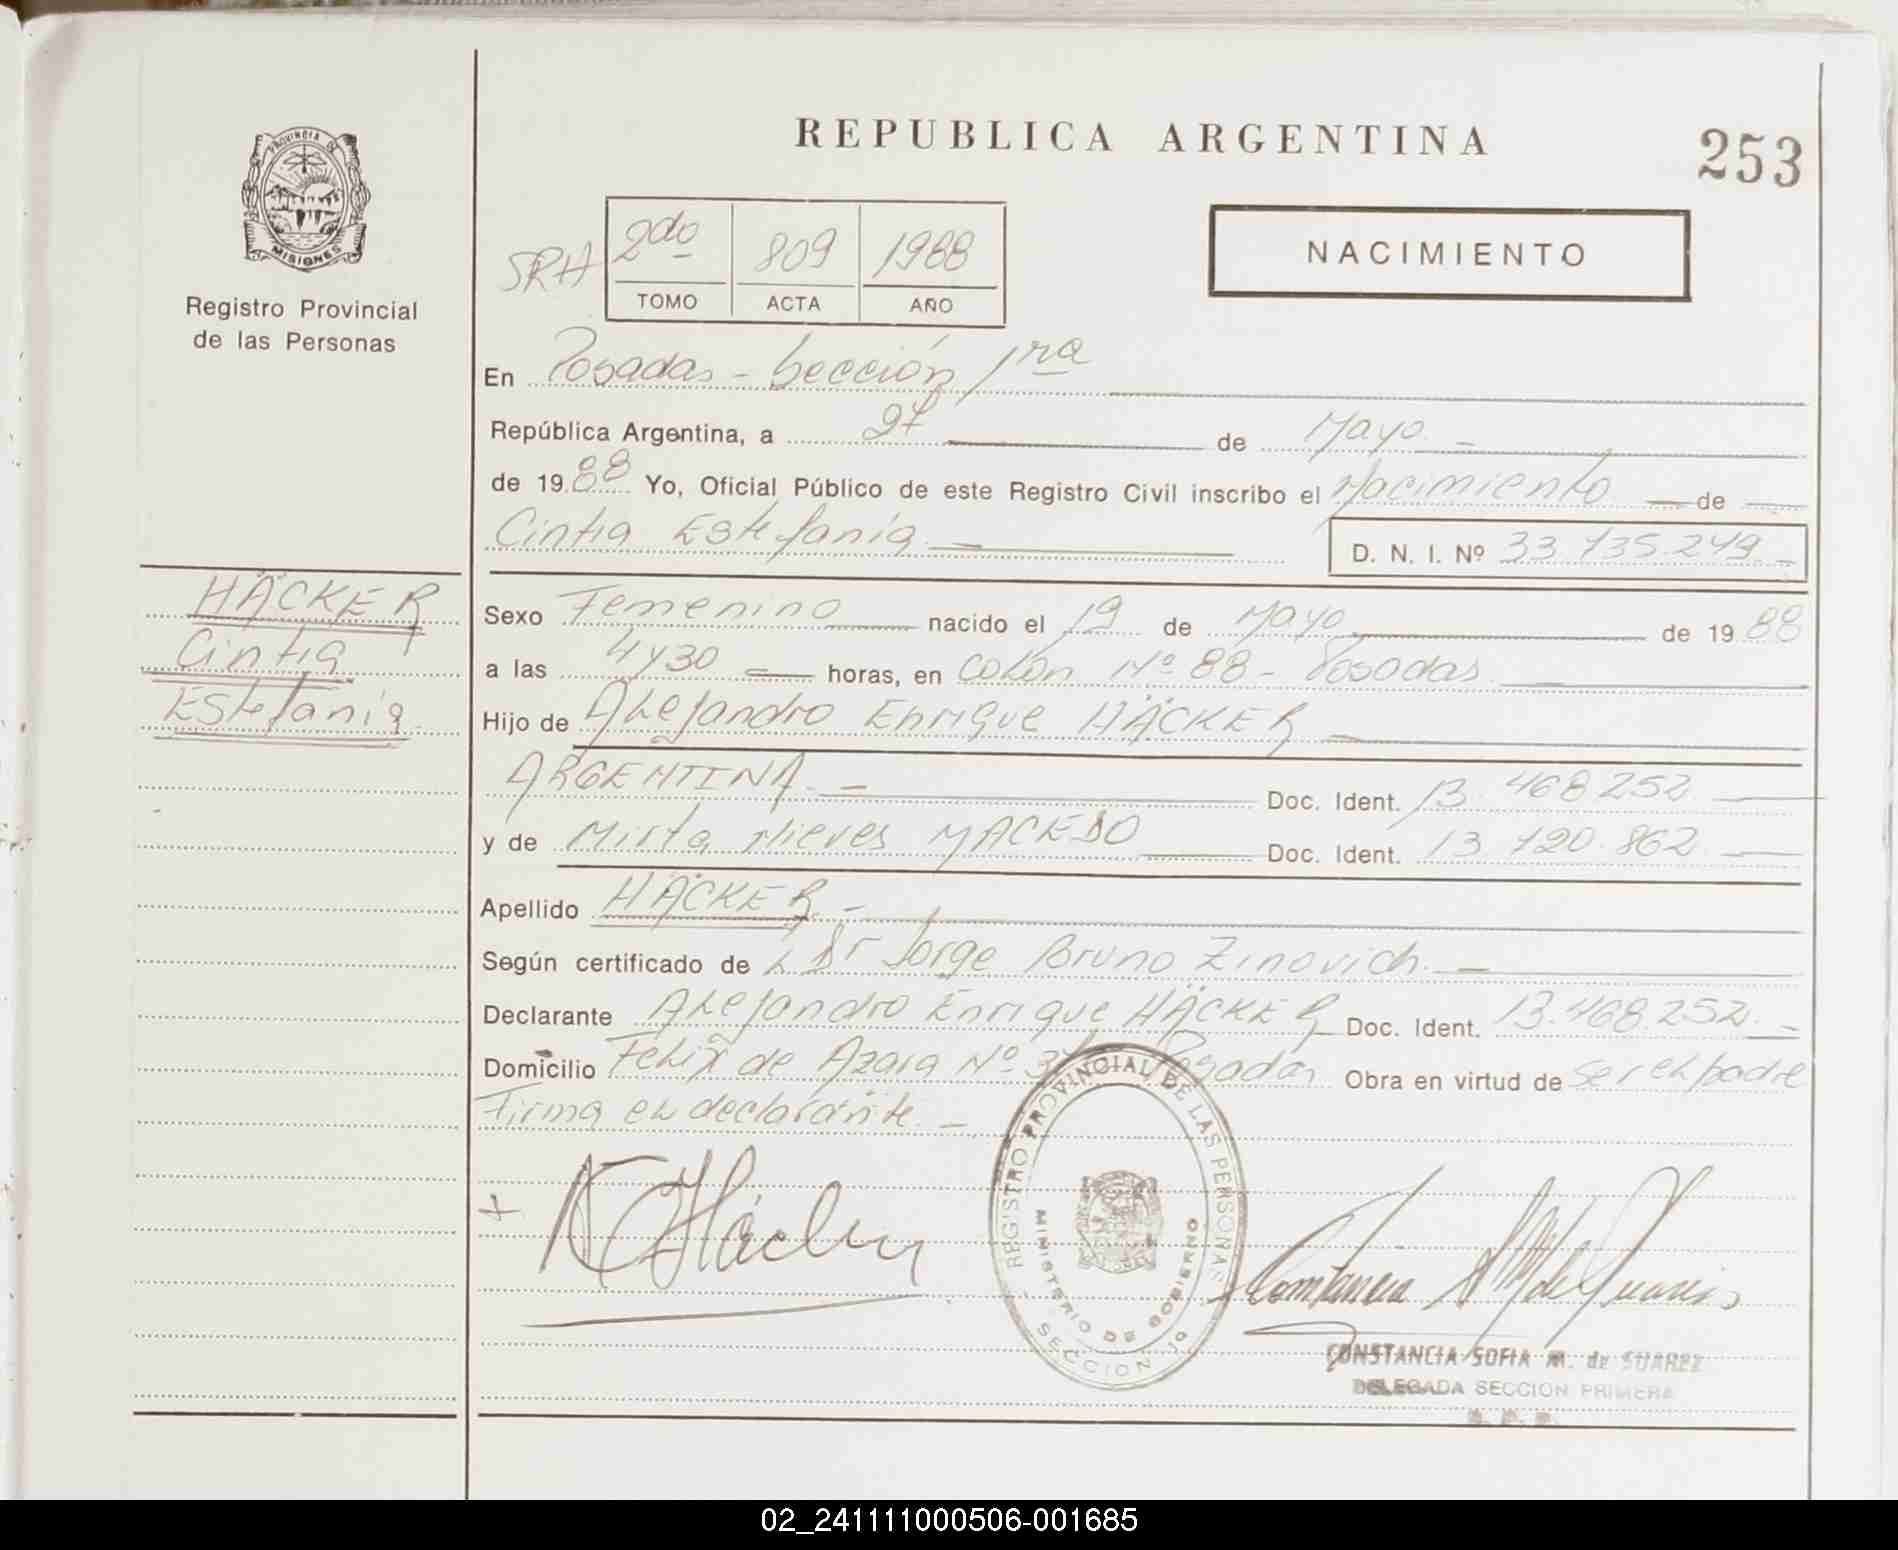 REPUBLICA ARGENTINA
253
PROVINCIA DE
MISIONES
Registro Provincial
de las Personas
SRA
2do 809 1988
TOMO ACTA AÑO
NACIMIENTO
En Posadas - Sección 1ra
República Argentina, a 27 de Mayo
de 1988 Yo, Oficial Público de este Registro Civil inscribo el Nacimiento de
Cintia Estefanía
D. N. I. Nº 33.735.249
HÄCKER
Cintia
Estefanía
Sexo Femenino nacido el 19 de Mayo de 1988
a las 4 y 30 horas, en Colón Nº 88 - Posadas
Hijo de Alejandro Enrique HÄCKER
ARGENTINA Doc. Ident. 13.468.252
y de Mirta Nieves MACEDO Doc. Ident. 13.720.862
Apellido HÄCKER
Según certificado de L Dr Jorge Bruno Zinovich
Declarante Alejandro Enrique HÄCKER Doc. Ident. 13.468.252
Domicilio Felix de Azara Nº Posadas Obra en virtud de ser el padre
Firma el declarante
REGISTRO PROVINCIAL DE LAS PERSONAS
MINISTERIO DE GOBIERNO
SECCION 1º
CONSTANCIA SOFIA M. de SUAREZ
DELEGADA SECCION PRIMERA
02_241111000506-001685